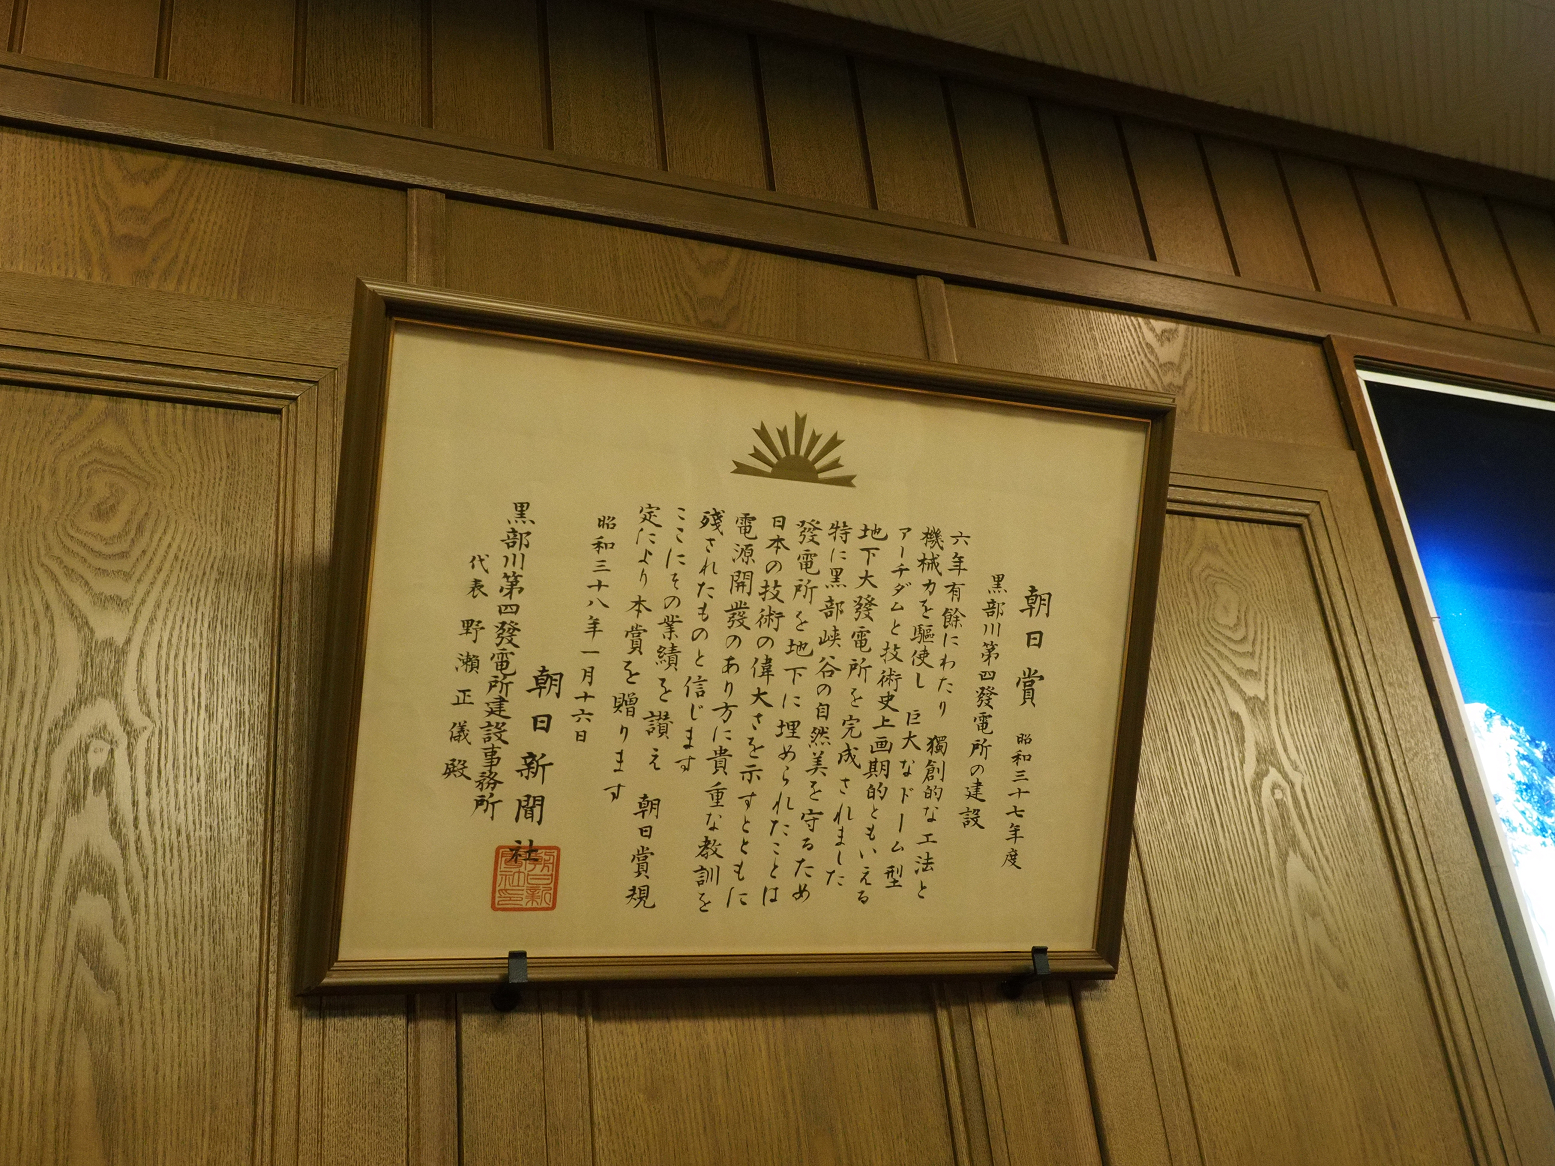 朝日賞 昭和三十七年度
黒部川第四發電所の建設
六年有餘にわたり 獨創的な工法と
機械力を驅使し 巨大なドーム型
アーチダムと技術史上画期的ともいえる
地下大發電所を完成されました
特に黒部峡谷の自然美を守るため
發電所を地下に埋められたことは
日本の技術の偉大さを示すとともに
電源開發のあり方に貴重な教訓を
残されたものと信じます
ここにその業績を讃え 朝日賞規
定により本賞を贈ります
昭和三十八年一月十六日
朝日新聞社
黒部川第四發電所建設事務所
代表 野瀬正儀殿